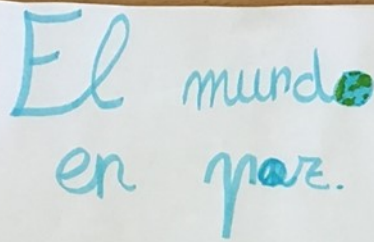 El mundo
en paz.